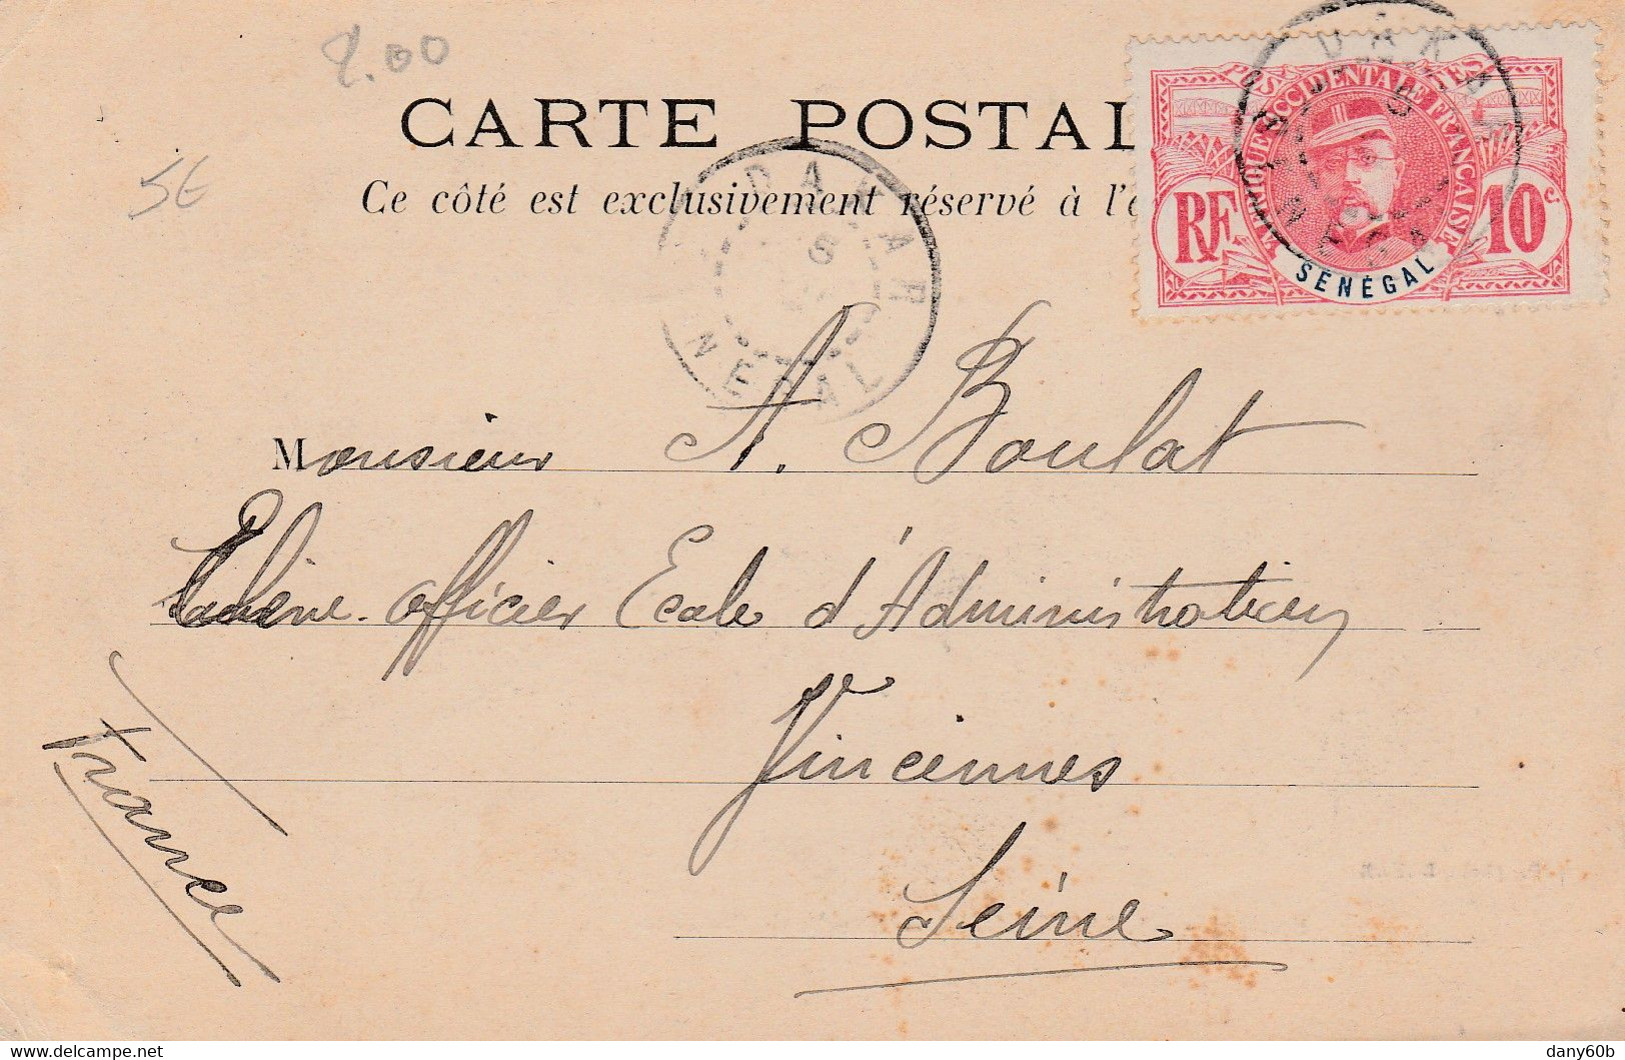 2.00
5€
CARTE POSTAL
Ce côté est exclusivement réservé à l'
POSTES
AFRIQUE OCCIDENTALE FRANÇAISE
RF
10c.
SENÉGAL
DAKAR
Monsieur A. Boulat
Elève officier Ecole d'Administration
Vincennes
Seine
France
delcampe.net
dany60b